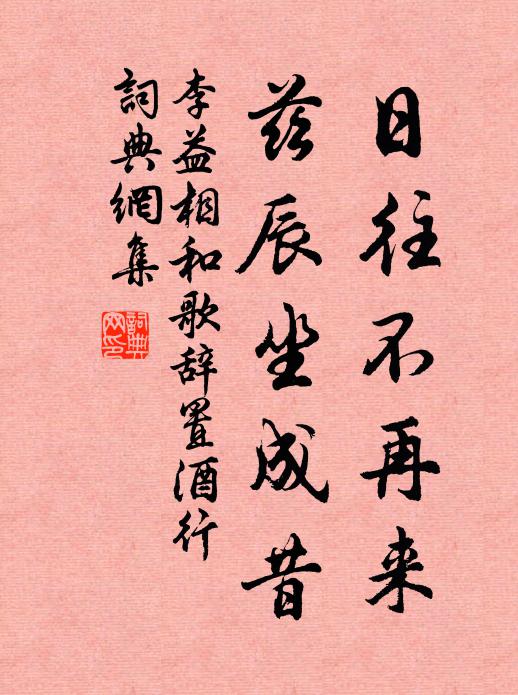 日往不再来
茲辰坐成昔
李益相和歌辞置酒行
詞典網集
詞典網印